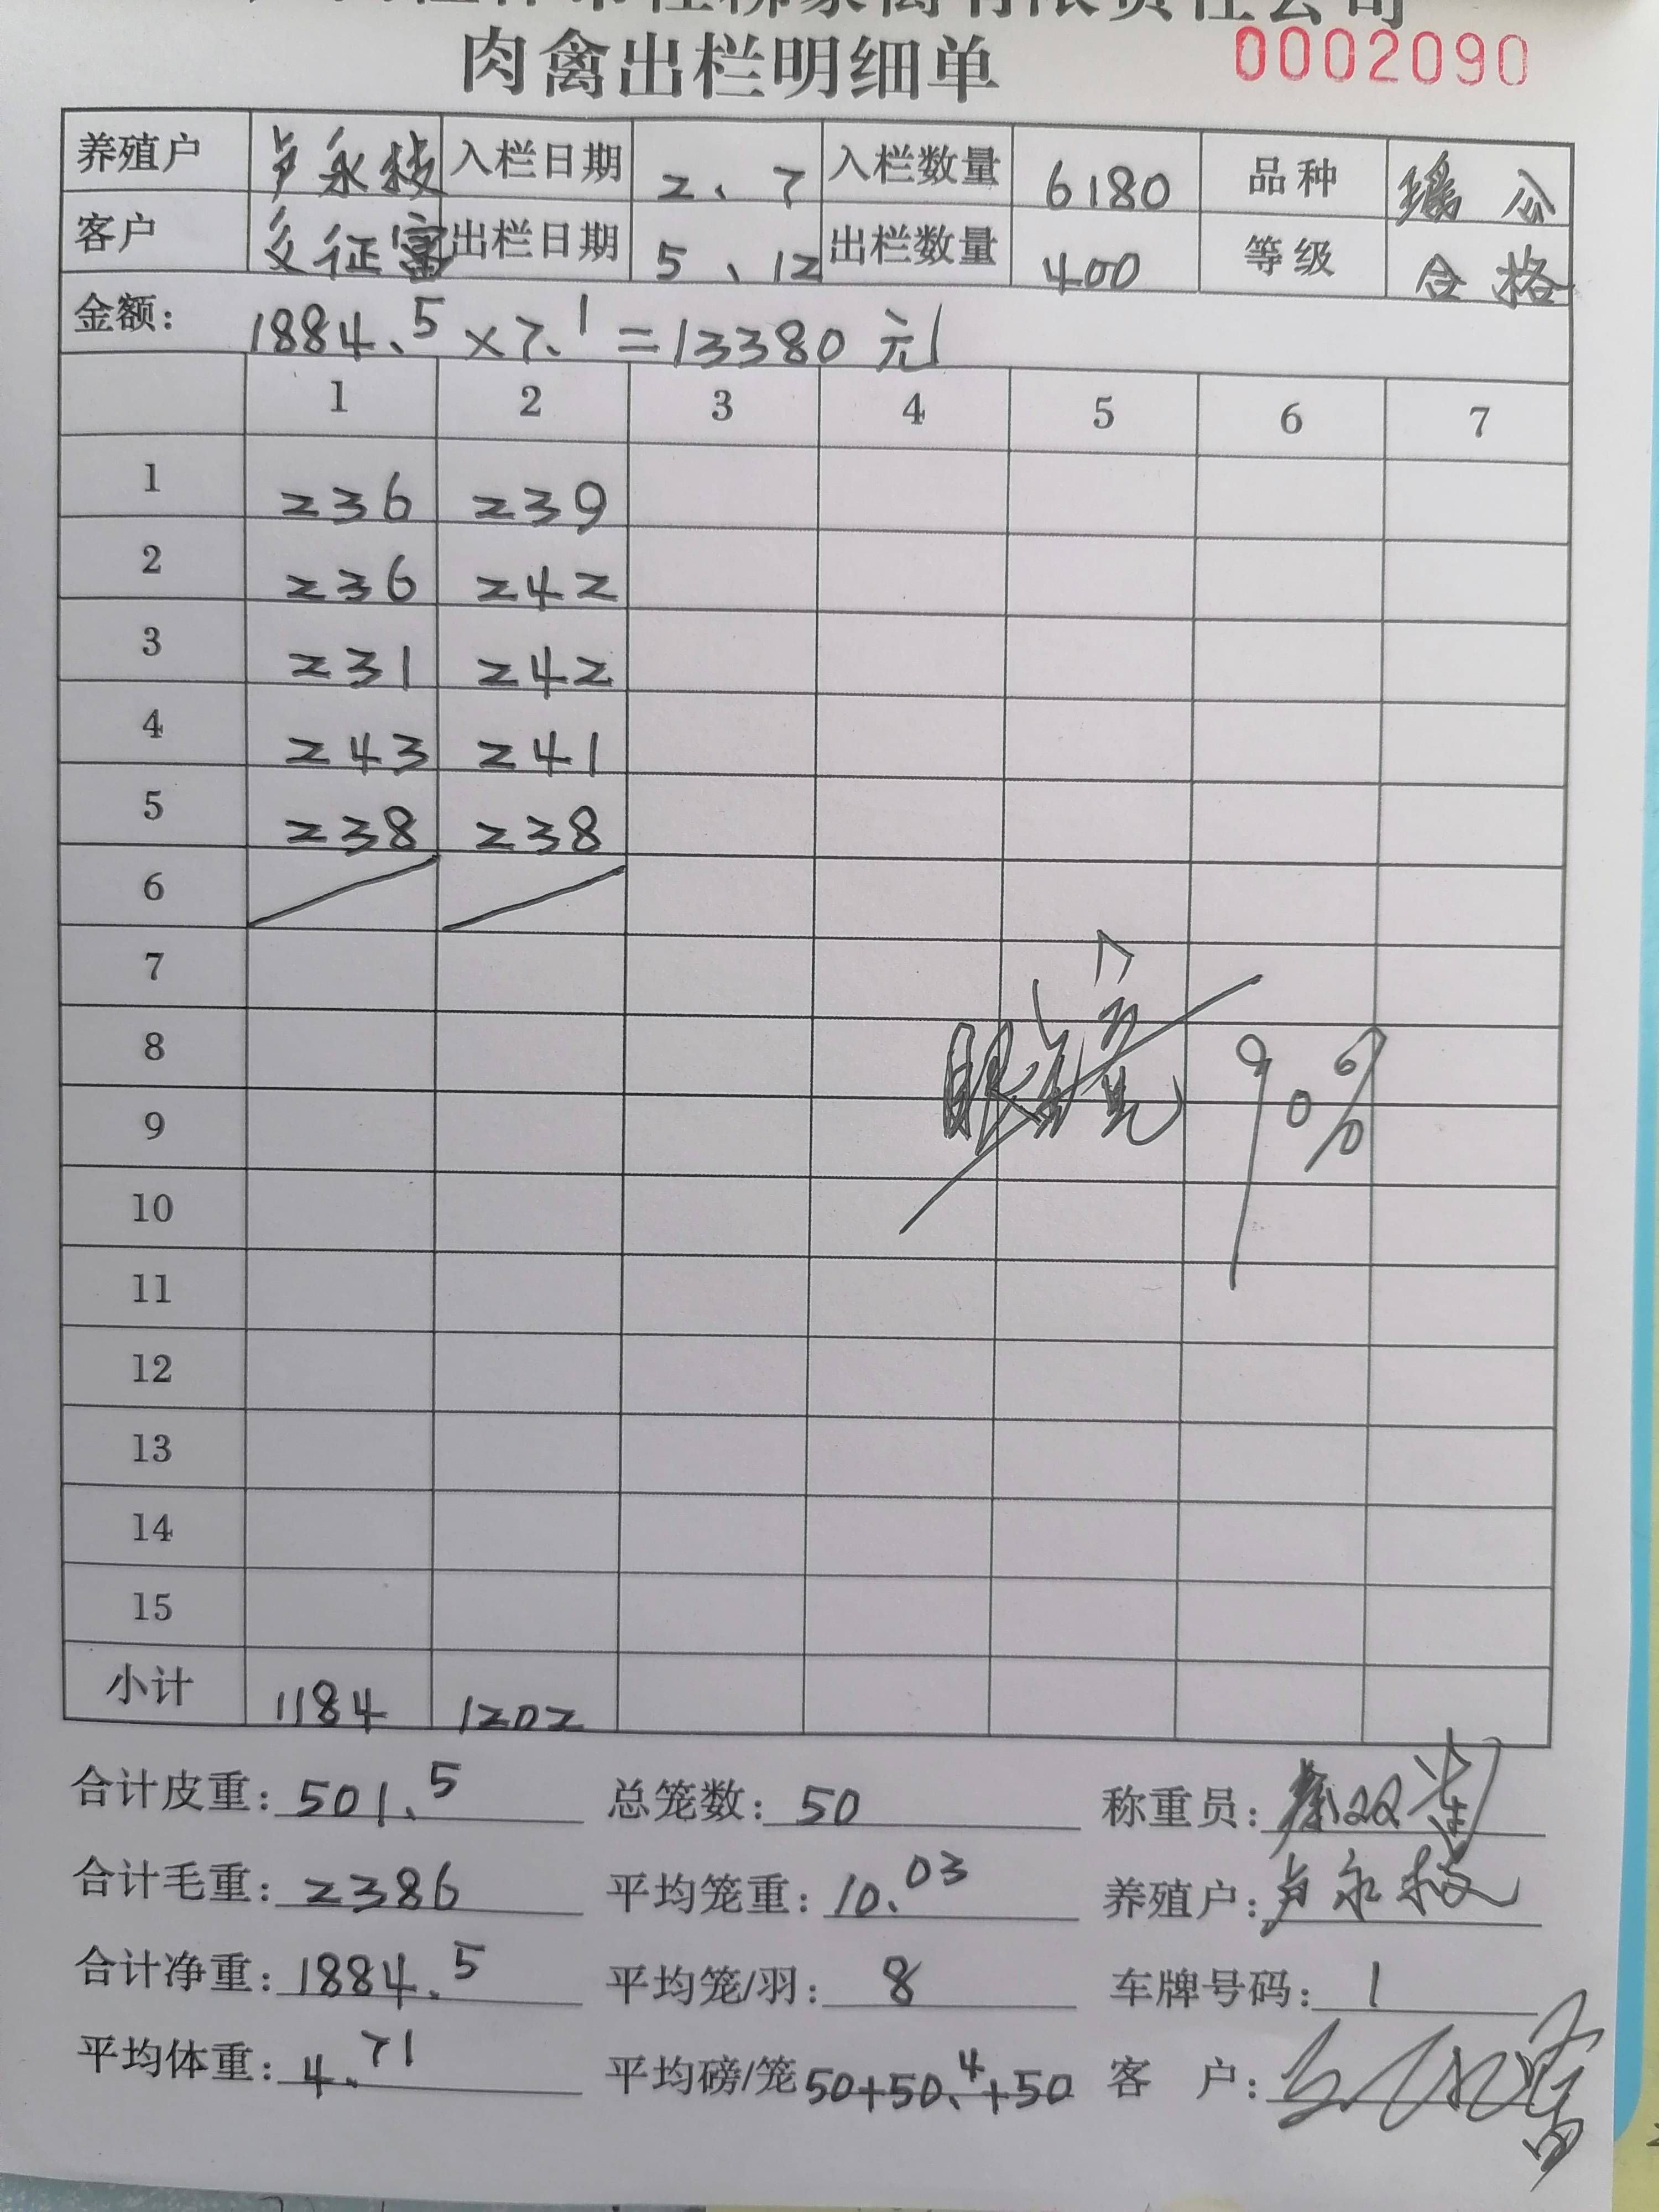 肉禽出栏明细单 0002090
养殖户 卢永枝 入栏日期 2、7 入栏数量 6180 品种 瑶公
客户 文征富 出栏日期 5、12 出栏数量 400 等级 合格
金额: 1884.5×7.1=13380元
1 2 3 4 5 6 7
1 236 239
2 236 242
3 231 242
4 243 241
5 238 238
6
7
8 90%
9
10
11
12
13
14
15
小计 1184 1202
合计皮重: 501.5 总笼数: 50 称重员:
合计毛重: 2386 平均笼重: 10.03 养殖户: 卢永枝
合计净重: 1884.5 平均笼/羽: 8 车牌号码: 1
平均体重: 4.71 平均磅/笼 50+50.4+50 客 户: